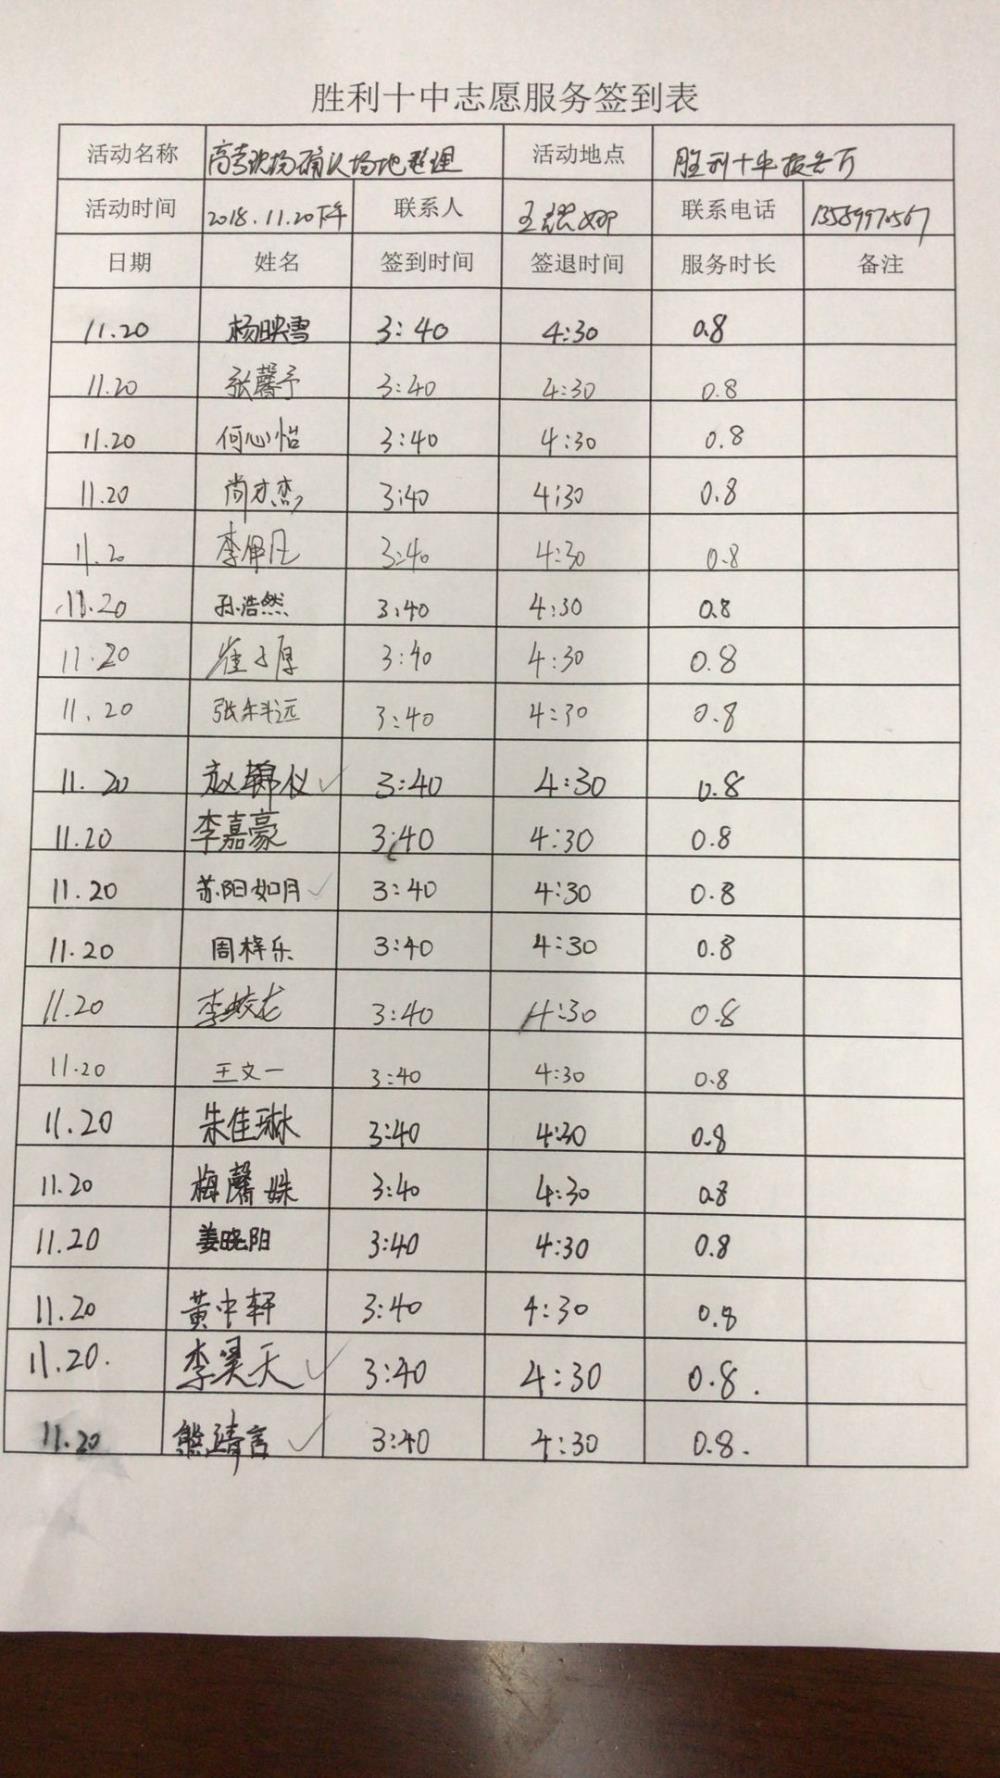 胜利十中志愿服务签到表
活动名称 高考现场确认场地整理 活动地点 胜利十中报告厅
活动时间 2018.11.20下午 联系人 王 娜 联系电话
日期 姓名 签到时间 签退时间 服务时长 备注
11.20 杨映雪 3:40 4:30 0.8
11.20 张馨予 3:40 4:30 0.8
11.20 何心怡 3:40 4:30 0.8
11.20 尚杰 3:40 4:30 0.8
11.20 李 3:40 4:30 0.8
11.20 孙浩然 3:40 4:30 0.8
11.20 崔子厚 3:40 4:30 0.8
11.20 张 远 3:40 4:30 0.8
11.20 赵锦仪 3:40 4:30 0.8
11.20 李嘉豪 3:40 4:30 0.8
11.20 苏阳如月 3:40 4:30 0.8
11.20 周梓乐 3:40 4:30 0.8
11.20 李蛟龙 3:40 4:30 0.8
11.20 王文一 3:40 4:30 0.8
11.20 朱佳琳 3:40 4:30 0.8
11.20 梅馨姝 3:40 4:30 0.8
11.20 姜晓阳 3:40 4:30 0.8
11.20 黄中轩 3:40 4:30 0.8
11.20. 李昊天 3:40 4:30 0.8.
11.20 熊靖言 3:40 4:30 0.8.